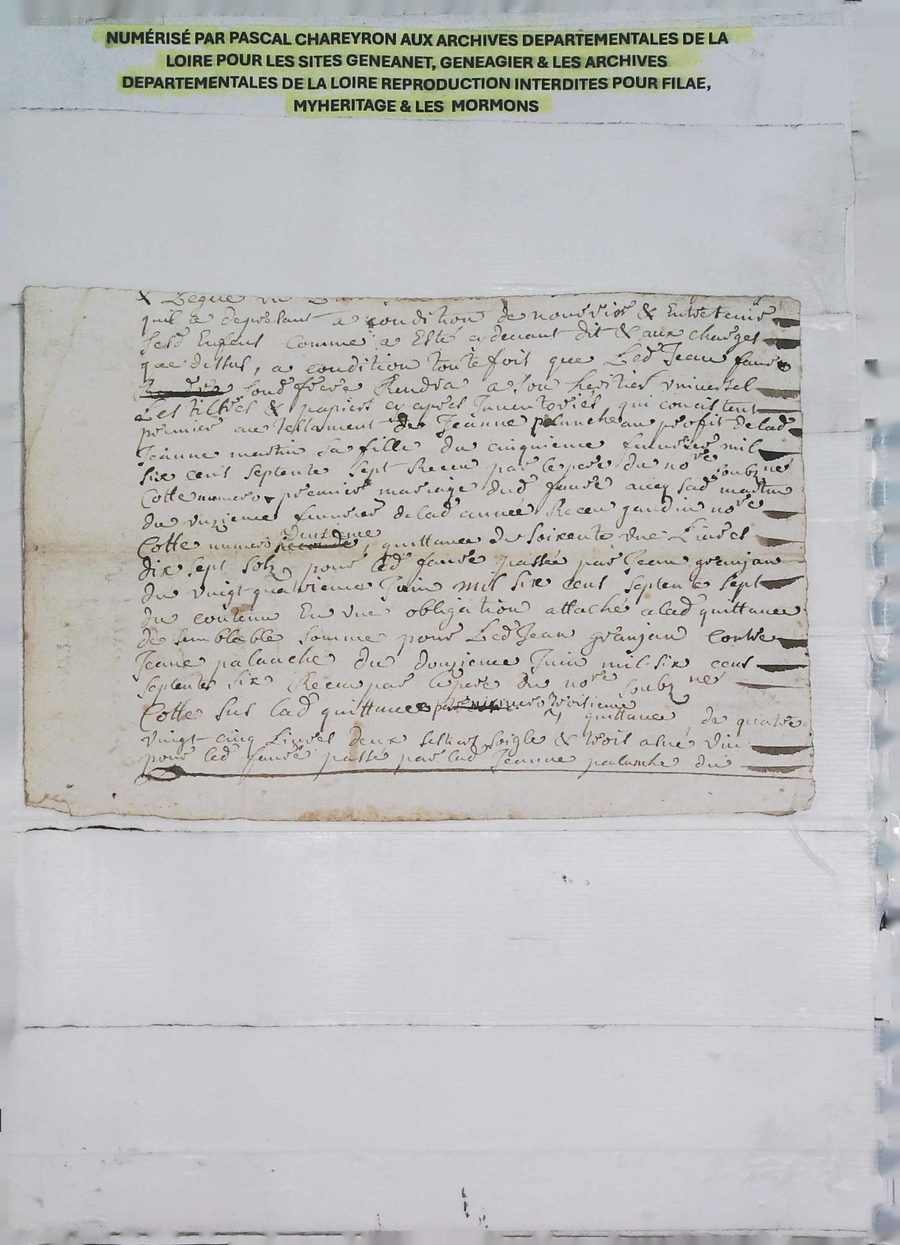 NUMÉRISÉ PAR PASCAL CHAREYRON AUX ARCHIVES DEPARTEMENTALES DE LA
LOIRE POUR LES SITES GENEANET, GENEAGIER & LES ARCHIVES
DEPARTEMENTALES DE LA LOIRE REPRODUCTION INTERDITES POUR FILAE,
MYHERITAGE & LES MORMONS
& Legue
quil a depresant a condition de nourrir & Entretenir
sesd Enfens comme a Estéadeuant dit & aux charges
que dessus, a condition toutefoit que Led Jean faure
sond frere Rendra a son heritier vniversel
Les tiltres & papiers cy apres Inuentories qui concistent
premier au testament de Jeanne au profit de lad
Jeanne martin sa fille du cinquieme feurier mil
six cent septente sept Receu par le pere du nore soubzné
Cotte numero premier mariage dud faure auec sad martin
du vnzieme feurier de lad année Receu jandin nore
Cotte numero deuxieme, quittance du soixente vne Liures
dix sept solz pour led faure passée par Jean granjan
du vingt quatrieme Juin mil six cent septente sept
du contenu En vne obligation attaché a lad quittance
de semblable somme pour Led Jean granjan Contre
Jeane palanche du douzieme Juin mil six cens
septente six Receu par le pere du nore soubzné
Cotte sus lad quittance numero troisieme quittance de quatre
vingt cinq Liures deux seigle & trois asné vin
pour led faure passé par lad Jeanne palanche du